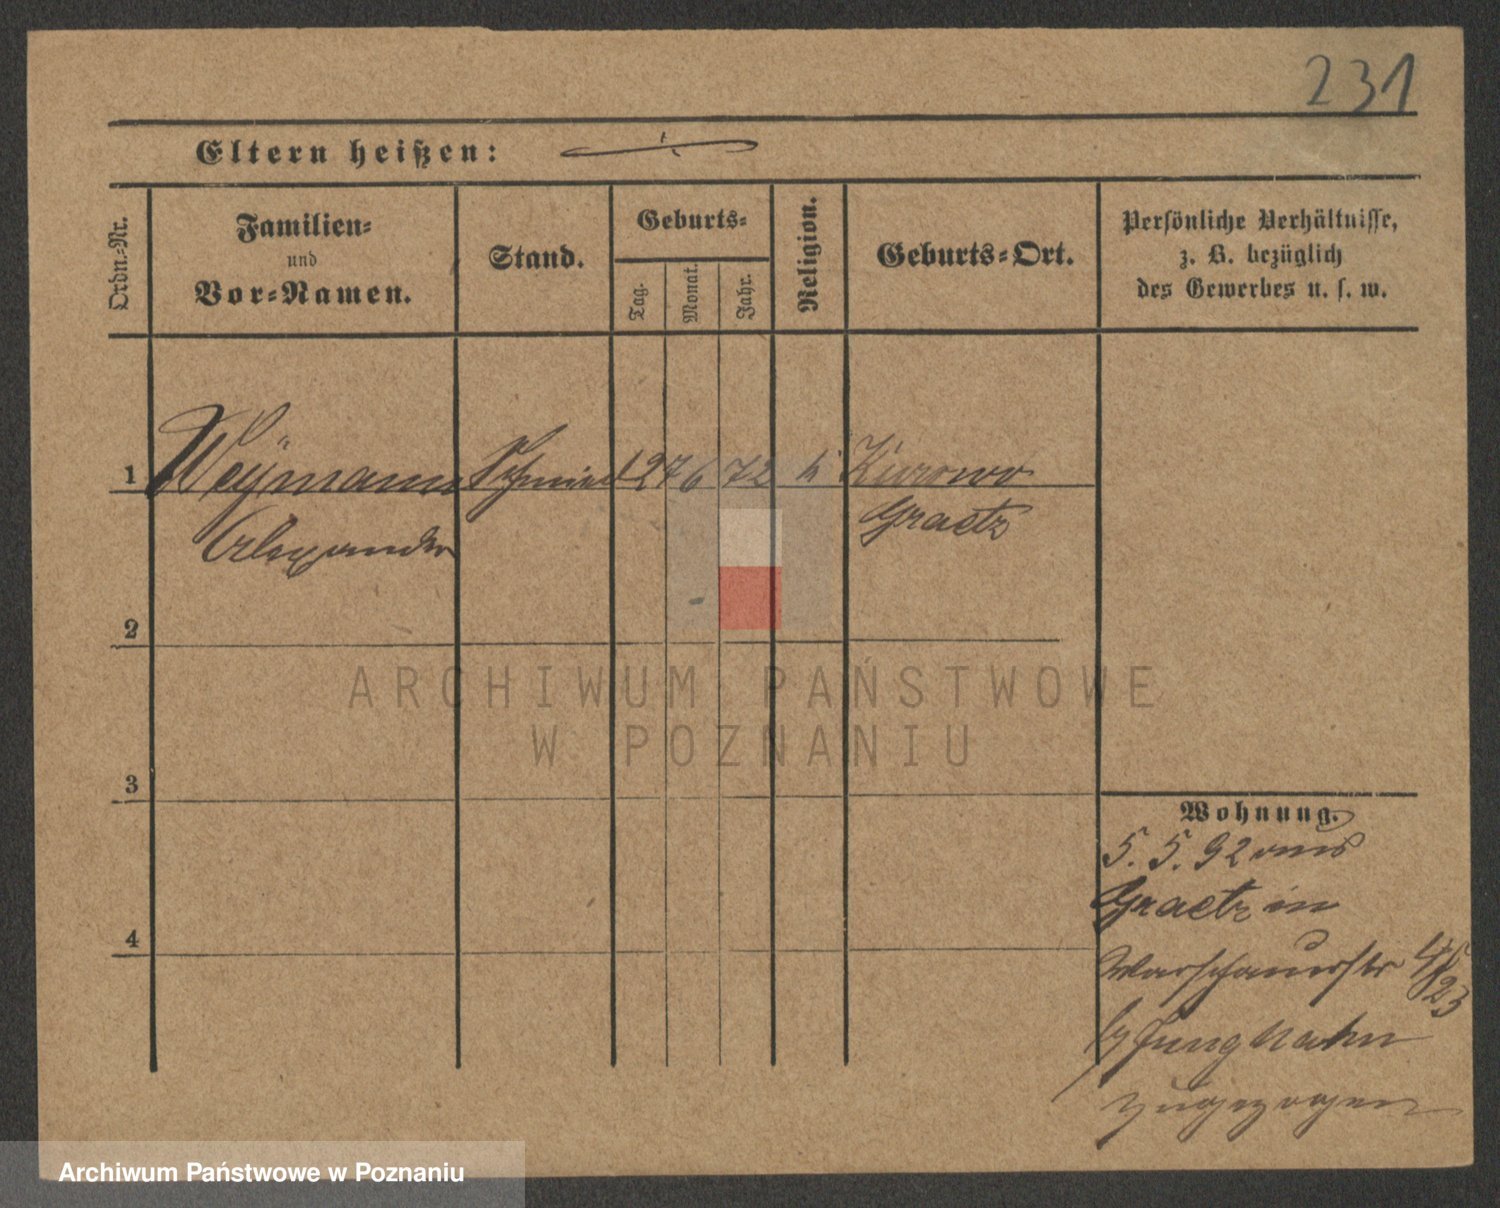 231
Eltern heißen:
Ordn.-Nr.
Familien-
und
Vor-Namen.
Stand.
Geburts-
Tag.
Monat.
Jahr.
Religion.
Geburts-Ort.
Persönliche Verhältnisse,
z. B. bezüglich
des Gewerbes u. s. w.
1 Weymann Schmied 27 6 72 k Kurowo
Alexander Graetz
2
3
4
Wohnung.
5. 5. 92 aus
Graetz in
Warschauerstr
23
Junghahn
zugezogen
ARCHIWUM PAŃSTWOWE
W POZNANIU
Archiwum Państwowe w Poznaniu